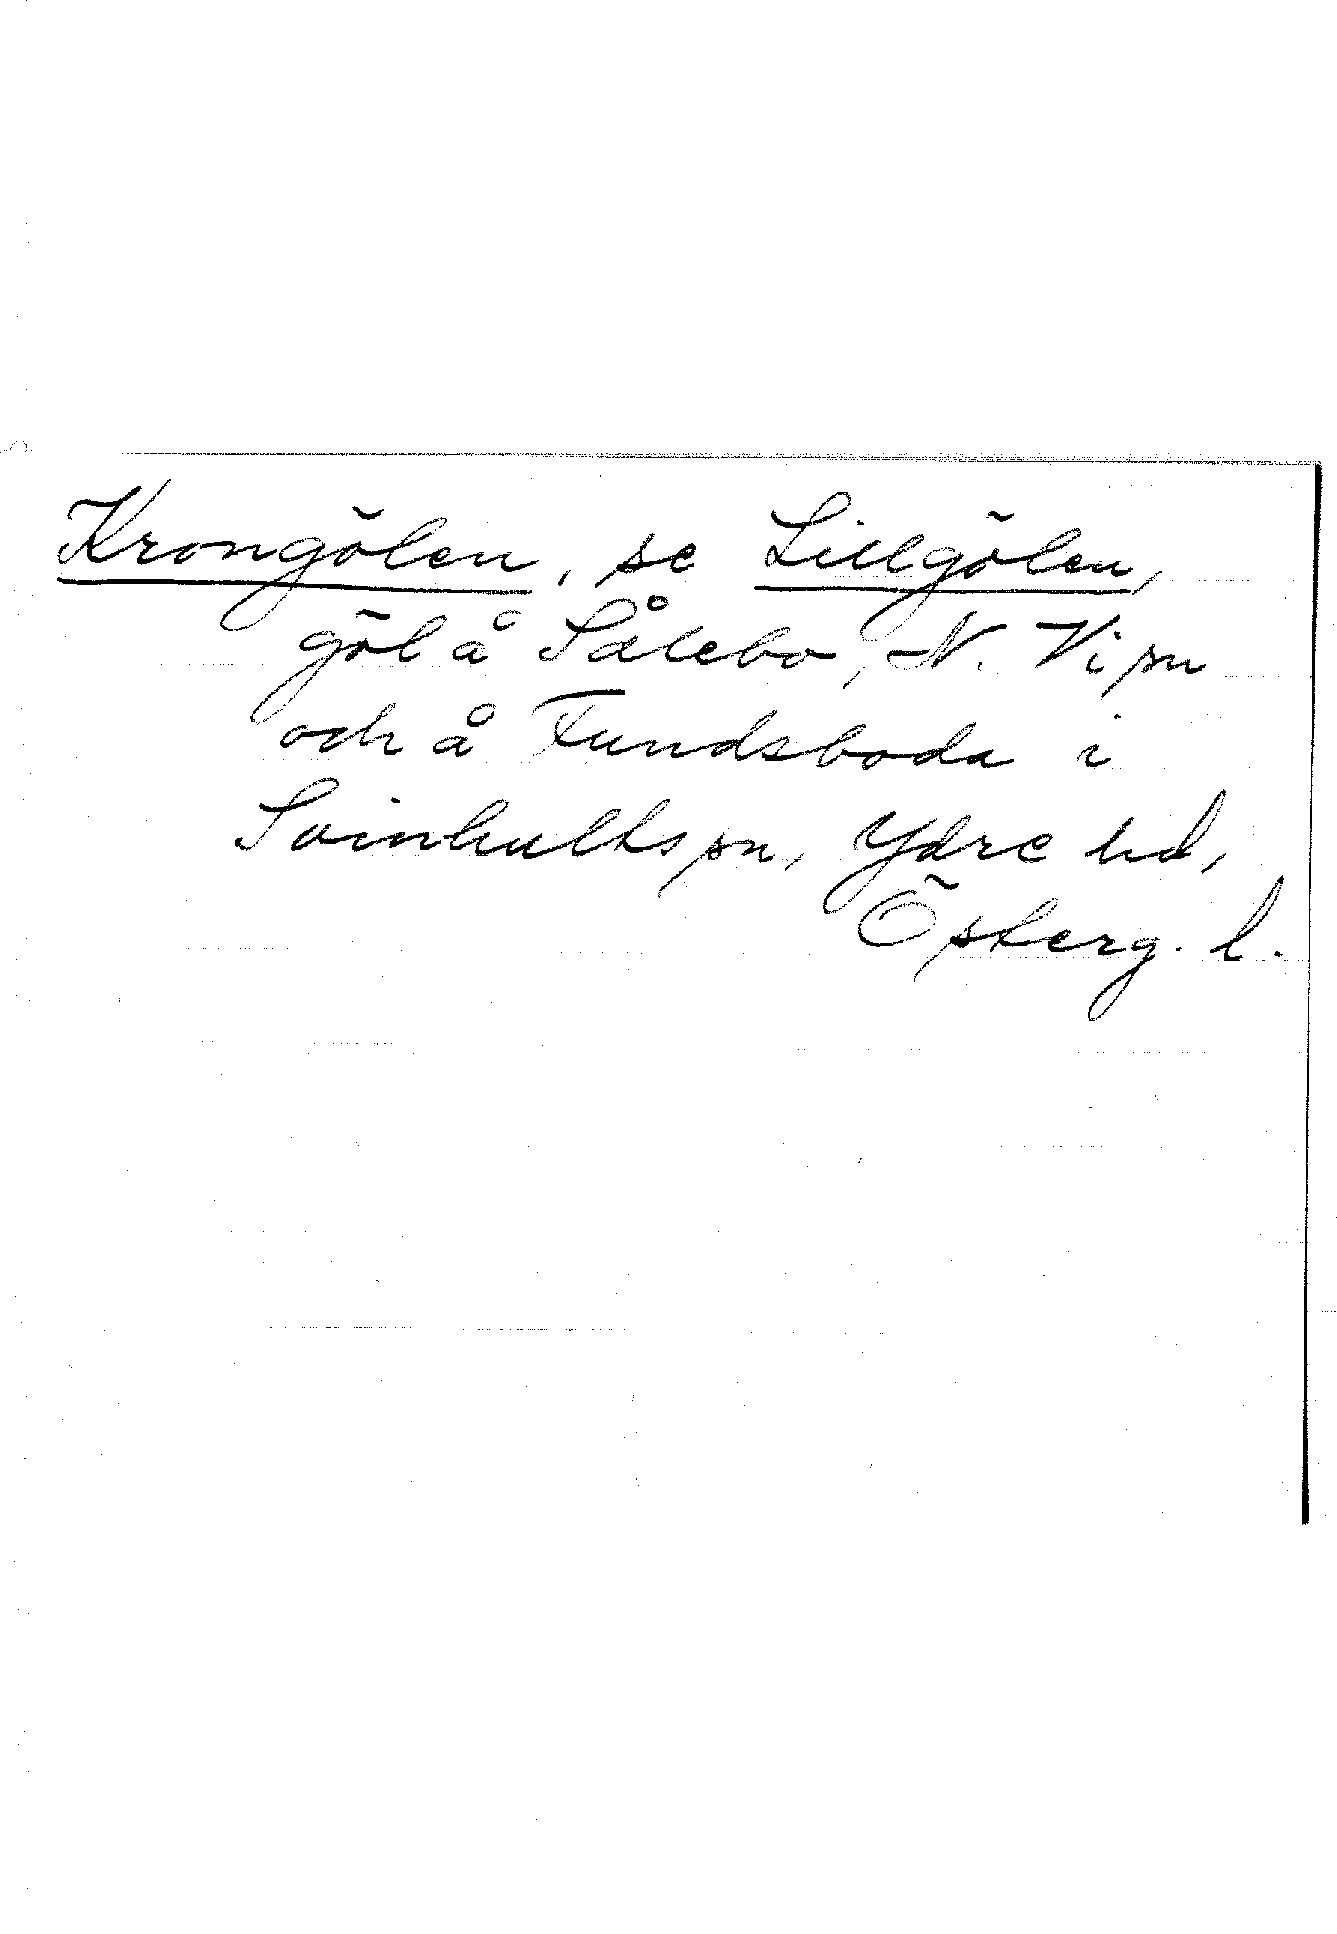 Krongölen, se Lillgölen,
göl å Sålebo, N. Vi sn
och å Fundsboda i
Svinhults sn, Ydre hd,
Österg. l.